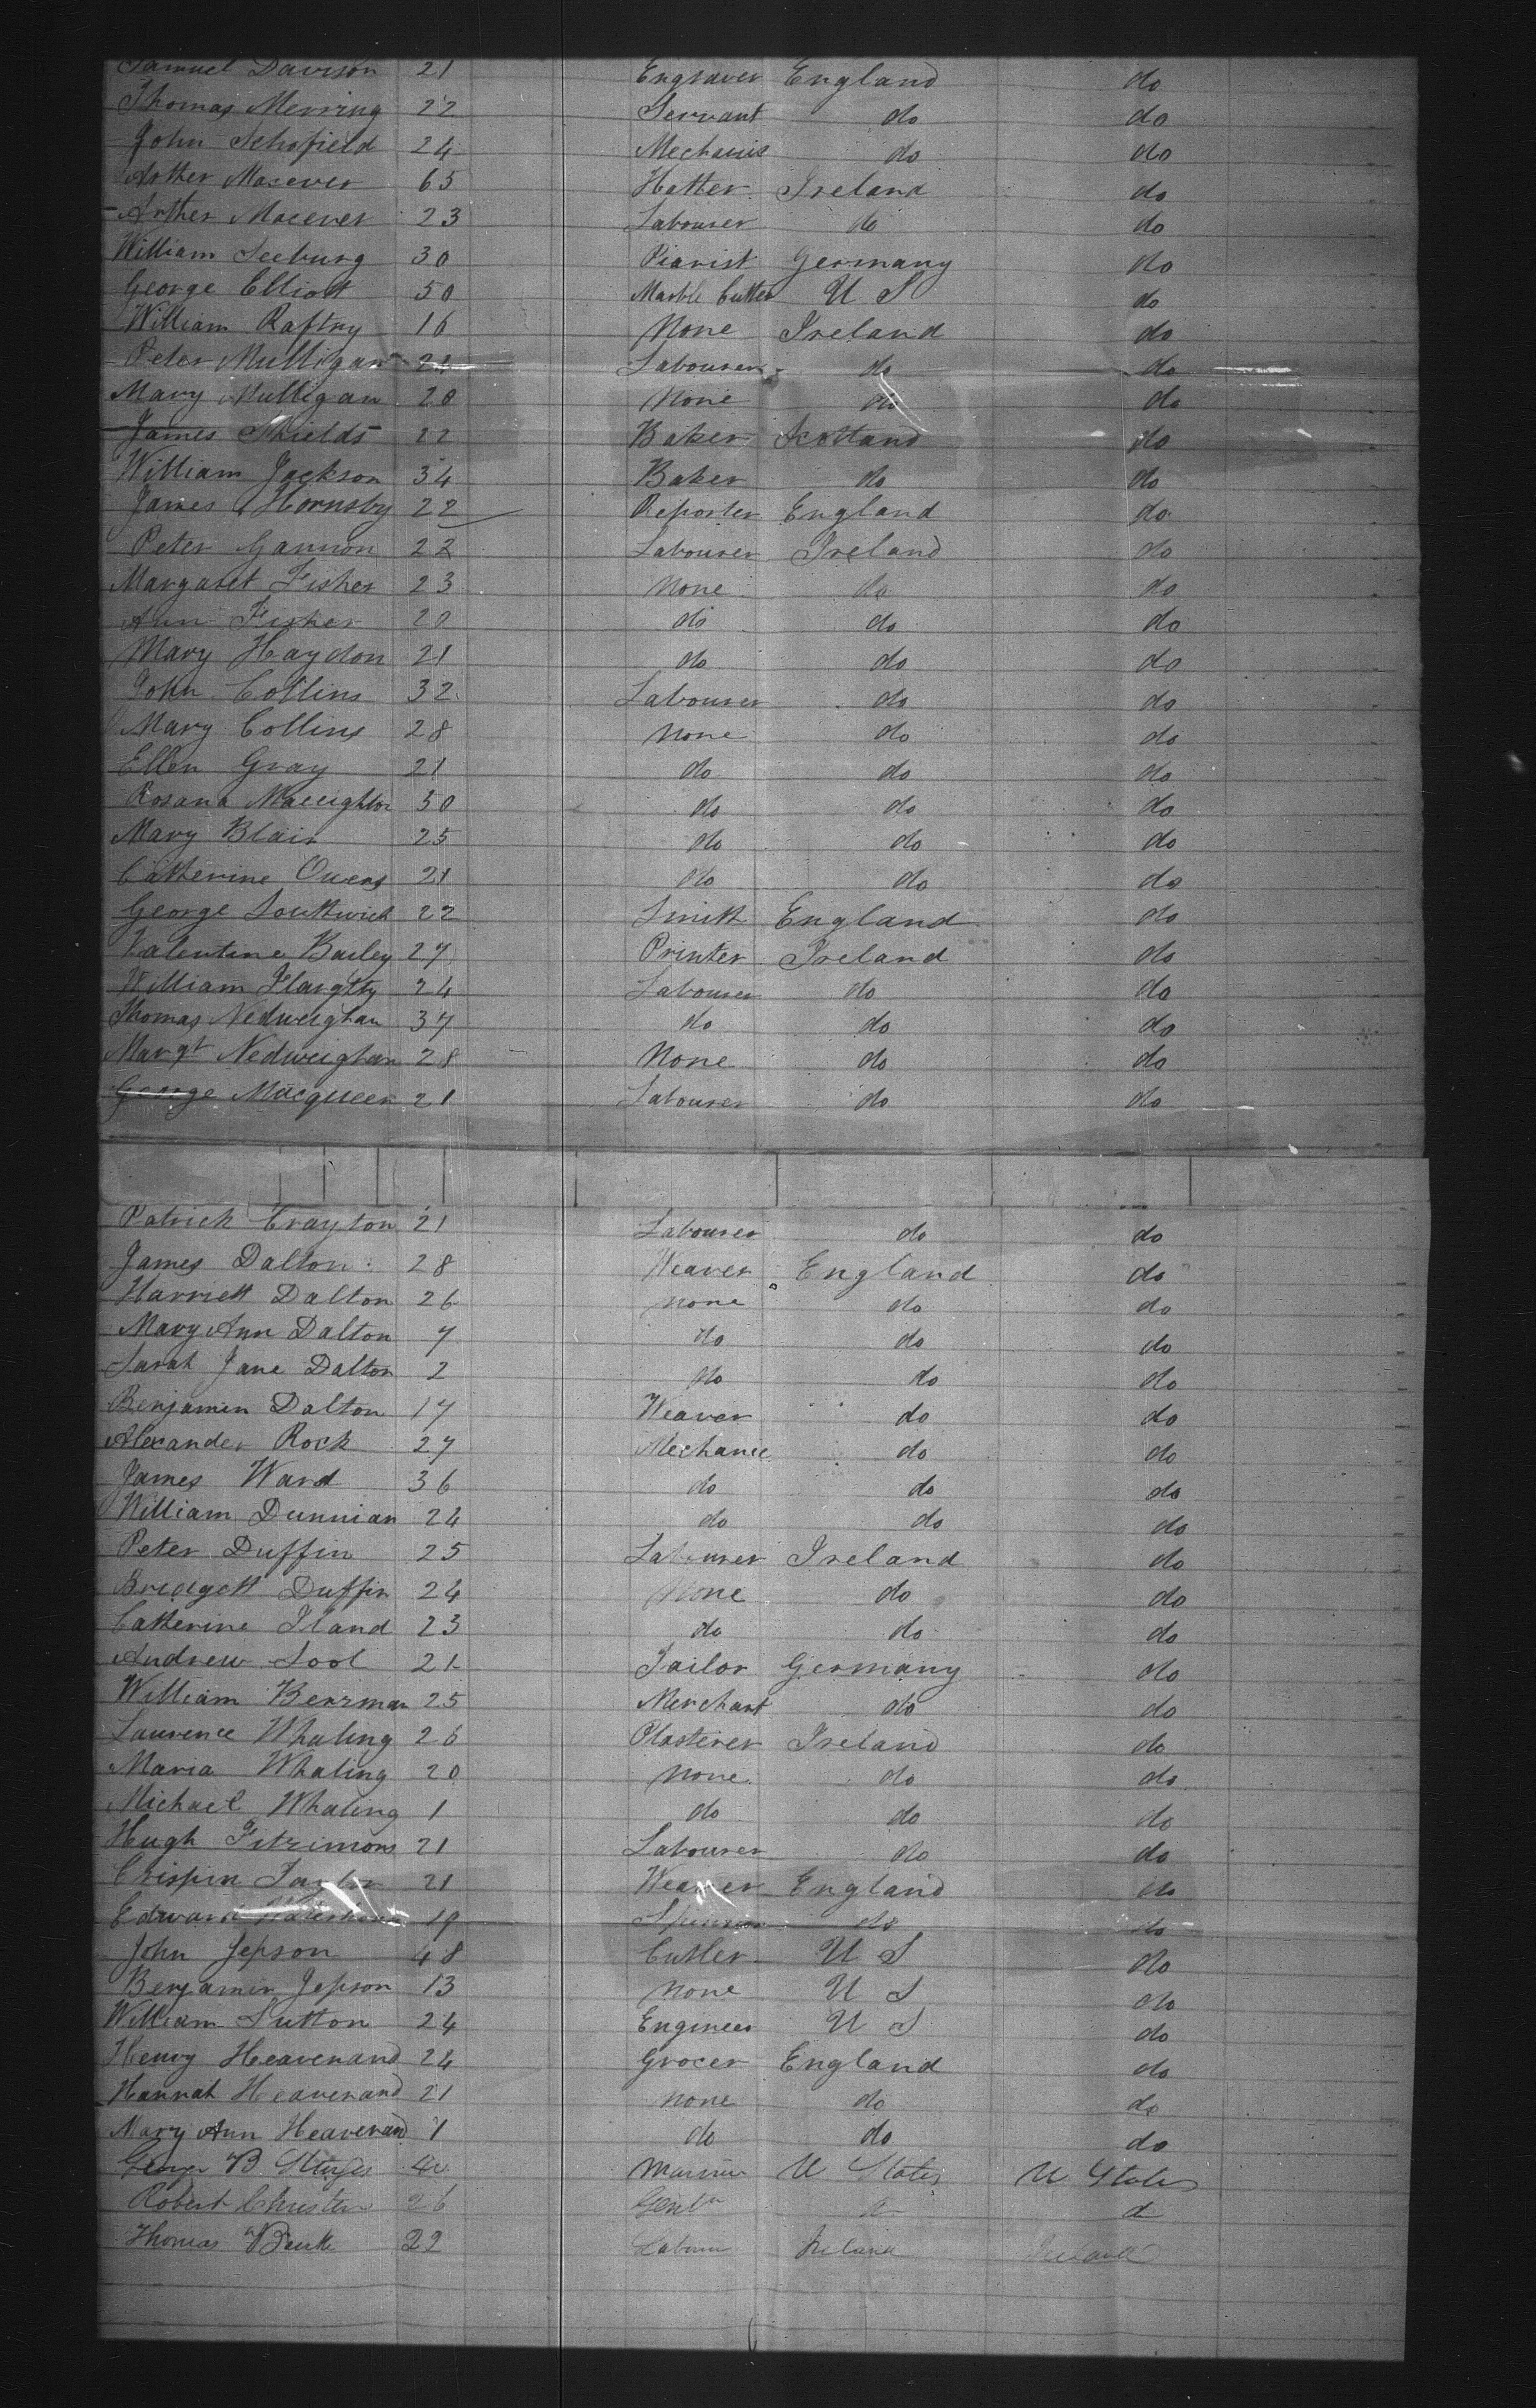 Samuel Davison 21 Engraver England do
Thomas Merring 22 Servant do do
John Schofield 24 Mechanic do do
Arther Macever 65 Hatter Ireland do
Arther Macever 23 Labourer do do
William Seeburg 30 Pianist Germany do
George Elliott 50 Marble Cutter U S do
William Raftry 16 None Ireland do
Peter Mulligan 24 Labourer do do
Mary Mulligan 20 None do do
James Shields 22 Baker Scotland do
William Jackson 34 Baker do do
James Hornsby 22 Reporter England do
Peter Gannon 22 Labourer Ireland do
Margaret Fisher 23 None do do
Ann Fisher 20 do do do
Mary Haydon 21 do do do
John Collins 32 Labourer do do
Mary Collins 28 None do do
Ellen Gray 21 do do do
Rosana 30 do do do
Mary Blair 25 do do do
Catherine Owens 21 do do do
George Southwick 22 Smith England do
Valentine Bailey 27 Printer Ireland do
William Flargtty 24 Labourer do do
Thomas Nedweighan 37 do do do
Margt Nedweighan 28 None do do
George Macqueen 21 Labourer do do
Patrick Crayton 21 Labourer do do
James Dalton 28 Weaver England do
Harriett Dalton 26 None do do
Mary Ann Dalton 7 do do do
Sarah Jane Dalton 2 do do do
Benjamin Dalton 17 Weaver do do
Alexander Rock 27 Mechanic do do
James Ward 36 do do do
William Dunnian 24 do do do
Peter Duffin 25 Labourer Ireland do
Bridgett Duffin 24 None do do
Catherine Iland 23 do do do
Andrew Sool 21 Tailor Germany do
William Berrman 25 Merchant do do
Laurence Whaling 26 Plasterer Ireland do
Maria Whaling 20 None do do
Michael Whaling 1 do do do
Hugh Fitzimons 21 Labourer do do
Crispin Taylor 21 Weaver England do
Edward 19 Spinner do do
John Jepson 48 Cutler U S do
Benjamin Jepson 13 None U S do
William Sutton 24 Engineer U S do
Henry Heavenand 24 Grocer England do
Hannah Heavenand 21 None do do
Mary Ann Heavenand 1 do do do
George B Sturges Mariner U States U States
Robert 26 Gentn d d
Thomas 22 Labourer Ireland